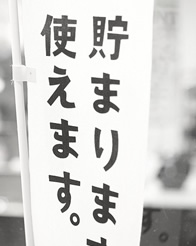 貯まりま
使えます。